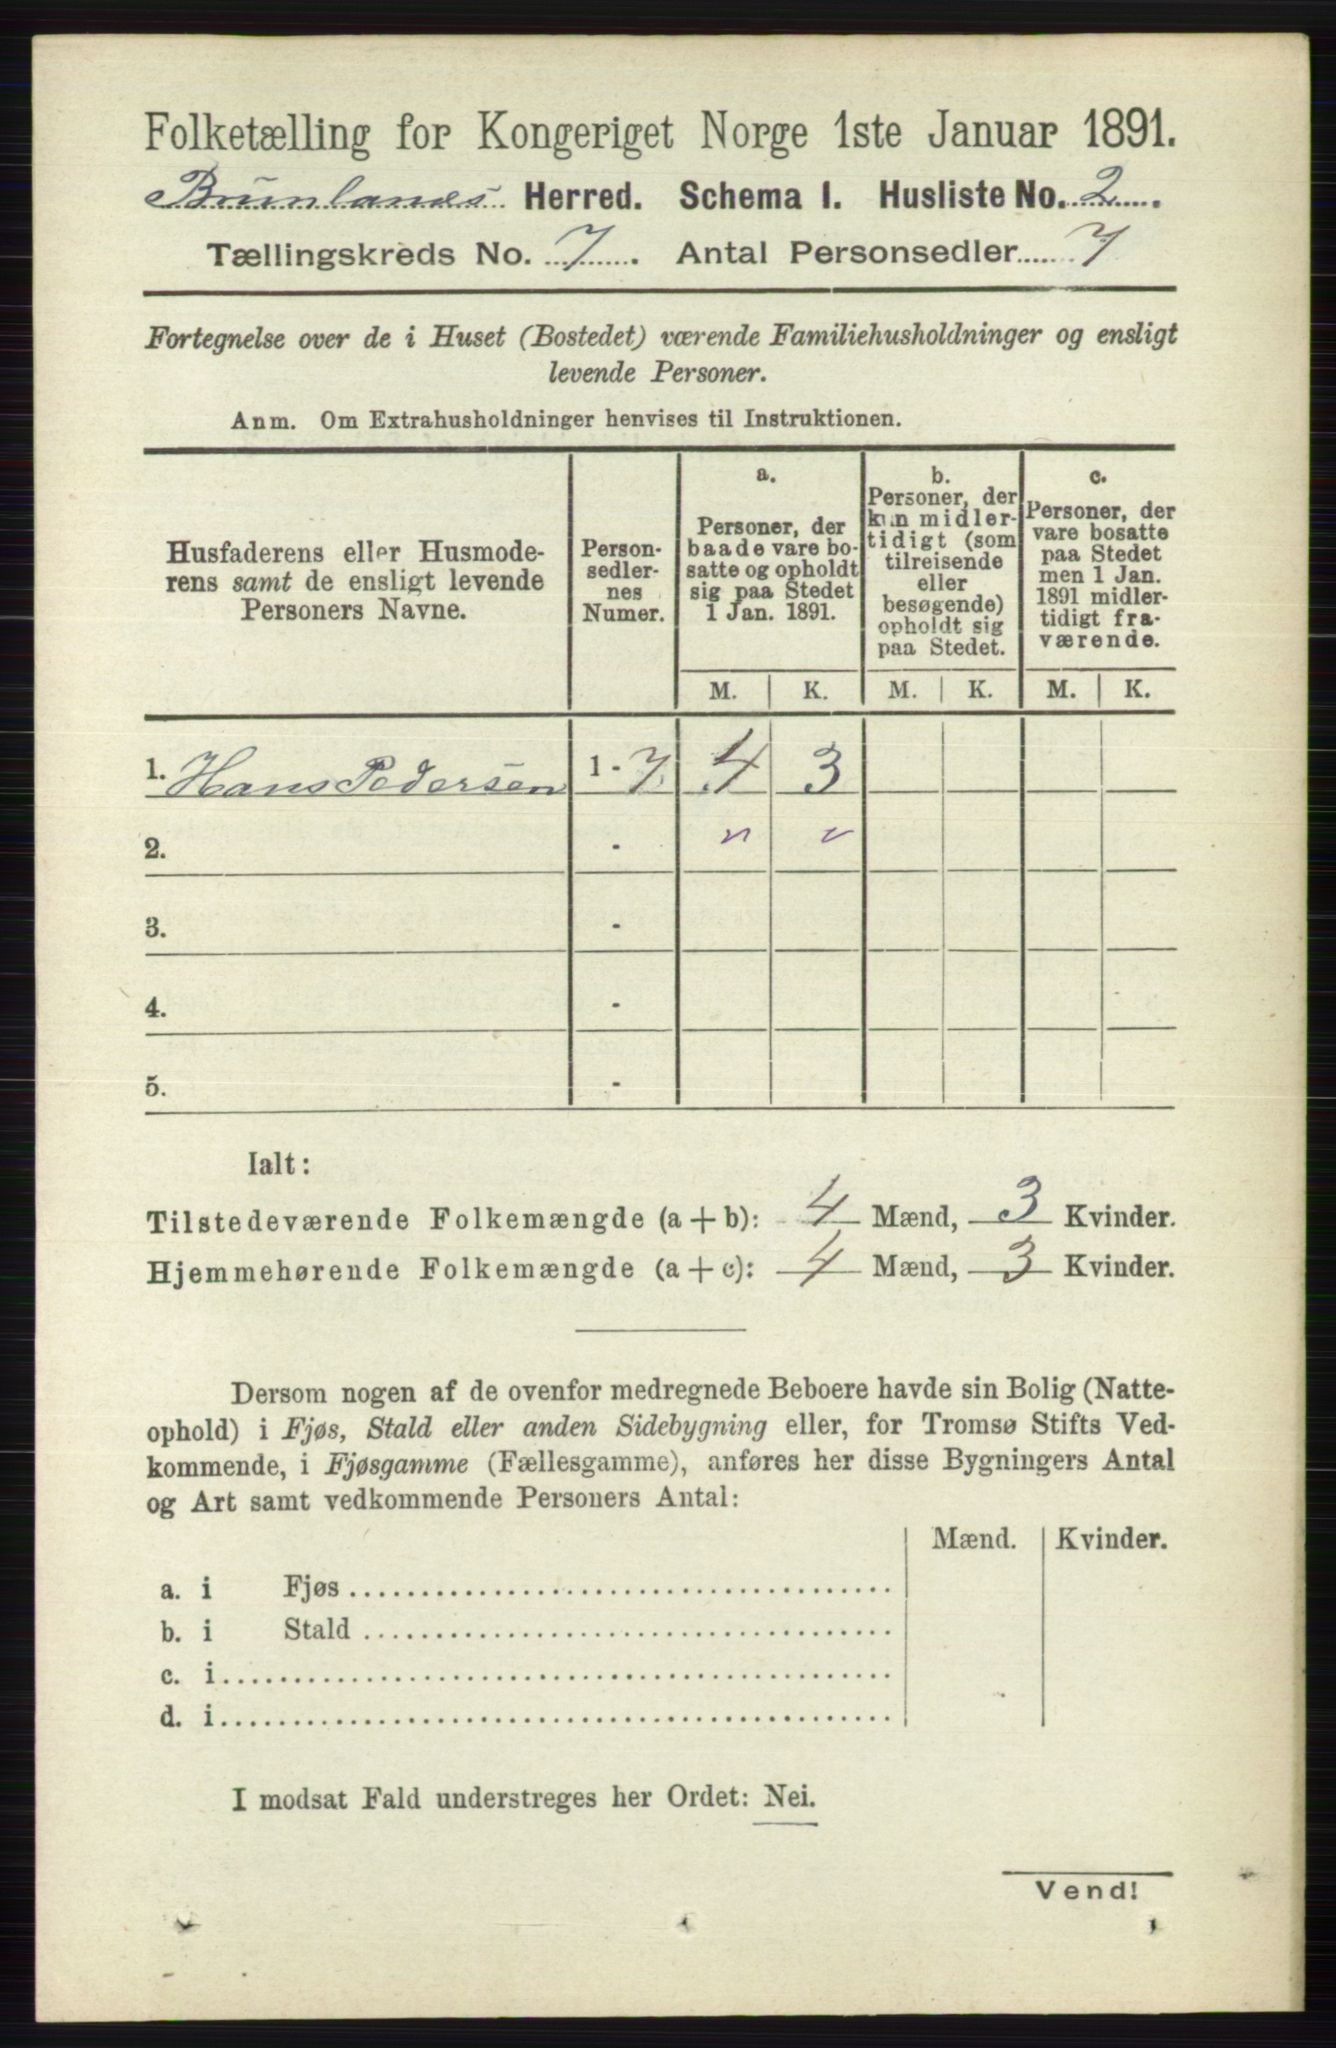 Folketælling for Kongeriget Norge 1ste Januar 1891.
Brunlanes Herred. Schema I. Husliste No. 2
Tællingskreds No. 7. Antal Personsedler 7
Fortegnelse over de i Huset (Bostedet) værende Familiehusholdninger og ensligt
levende Personer.
Anm. Om Extrahusholdninger henvises til Instruktionen.
Husfaderens eller Husmode-
rens samt de ensligt levende
Personers Navne.
Person-
sedler-
nes
Numer.
a.
Personer, der
baade vare bo-
satte og opholdt
sig paa Stedet
1 Jan. 1891.
b.
Personer, der
kun midler-
tidigt (som
tilreisende
eller
besøgende)
opholdt sig
paa Stedet.
c.
Personer, der
vare bosatte
paa Stedet
men 1 Jan.
1891 midler-
tidigt fra-
værende.
M. K. M. K. M. K.
1. Hans Pedersen 1 - 7 4 3
2. -
3. -
4. -
5. -
Ialt:
Tilstedeværende Folkemængde (a + b): 4 Mænd, 3 Kvinder.
Hjemmehørende Folkemængde (a + c): 4 Mænd, 3 Kvinder.
Dersom nogen af de ovenfor medregnede Beboere havde sin Bolig (Natte-
ophold) i Fjøs, Stald eller anden Sidebygning eller, for Tromsø Stifts Ved-
kommende, i Fjøsgamme (Fællesgamme), anføres her disse Bygningers Antal
og Art samt vedkommende Personers Antal:
Mænd. Kvinder.
a. i Fjøs
b. i Stald
c. i
d. i
I modsat Fald understreges her Ordet: Nei.
Vend!